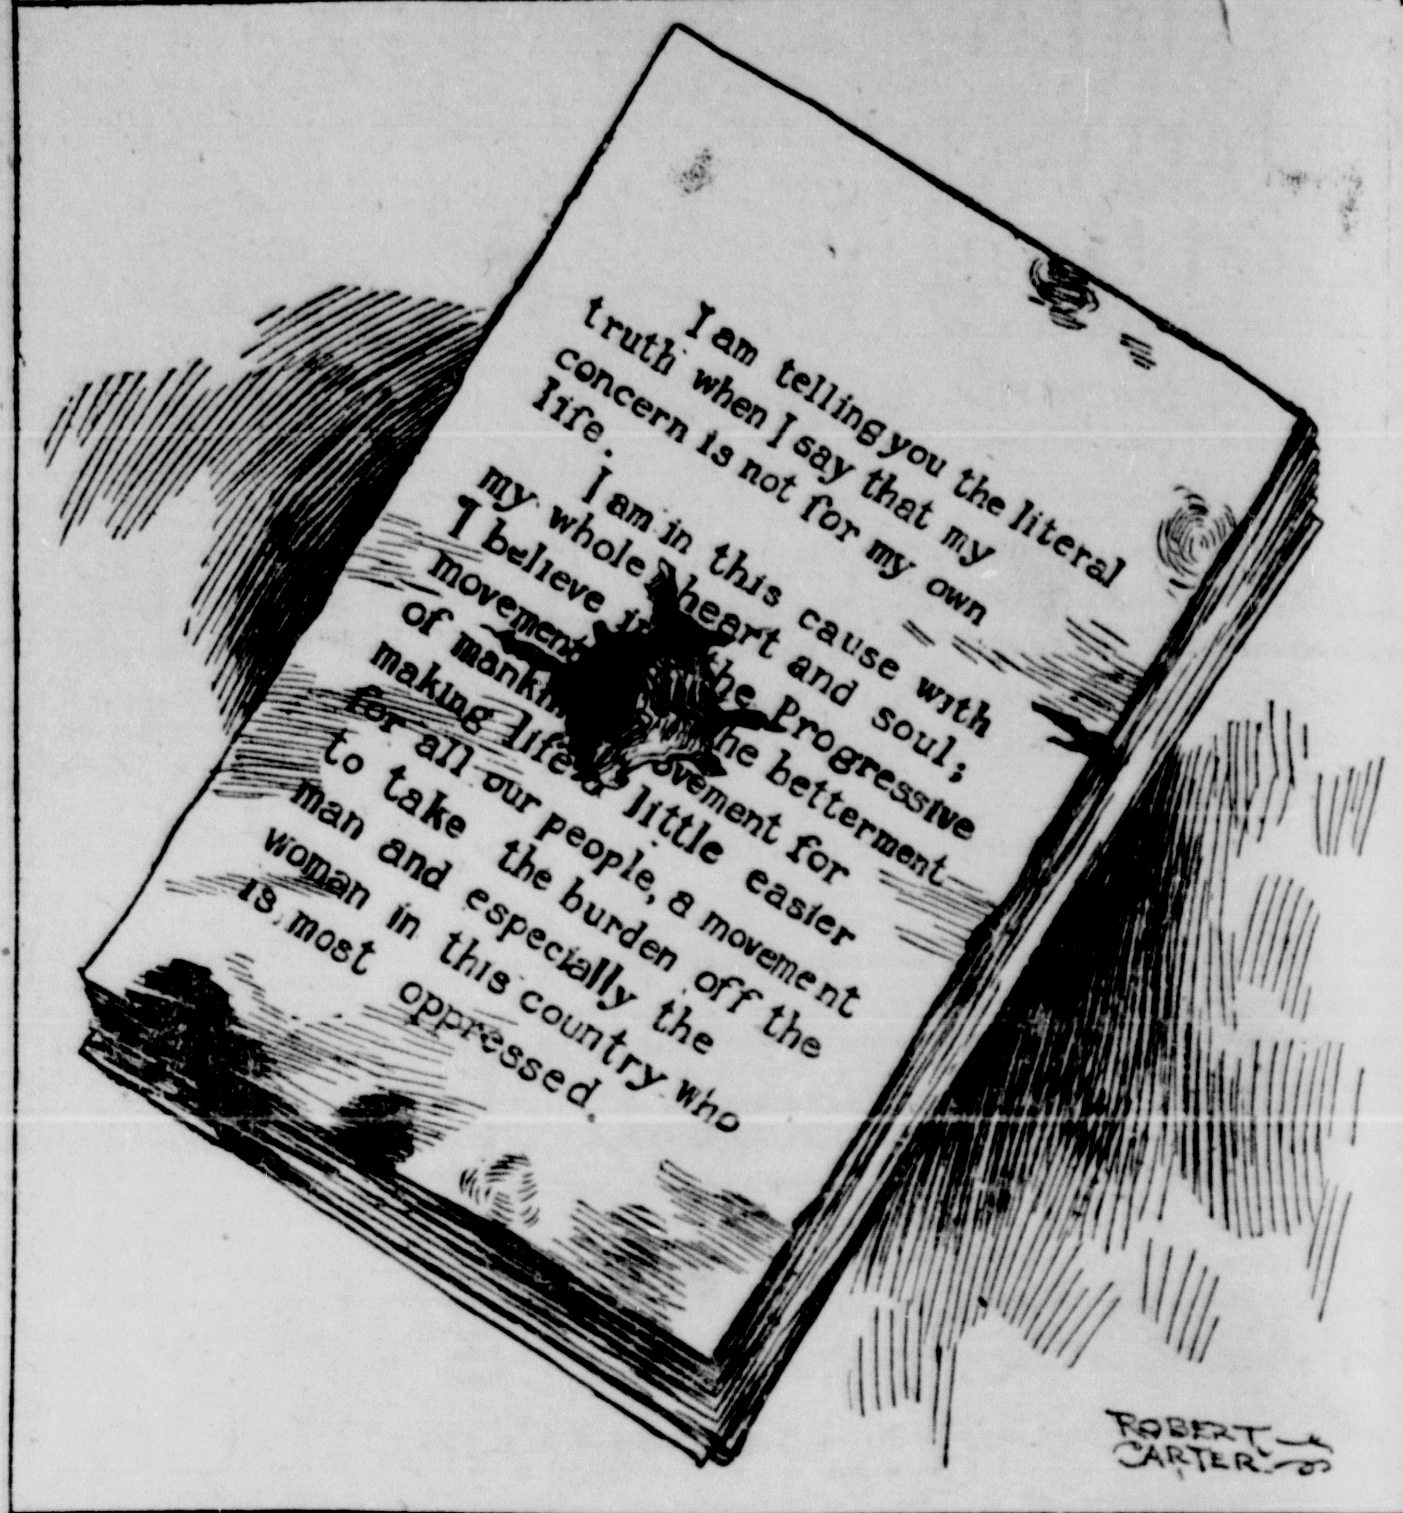 I am telling you the literal
truth when I say that my
concern is not for my own
life.
I am in this cause with
my whole heart and soul;
I believe in the Progressive
movement he betterment
of mankin ovement for
making life a little easier
for all our people, a movement
to take the burden off the
man and especially the
woman in this country who
is most oppressed.
ROBERT
CARTER